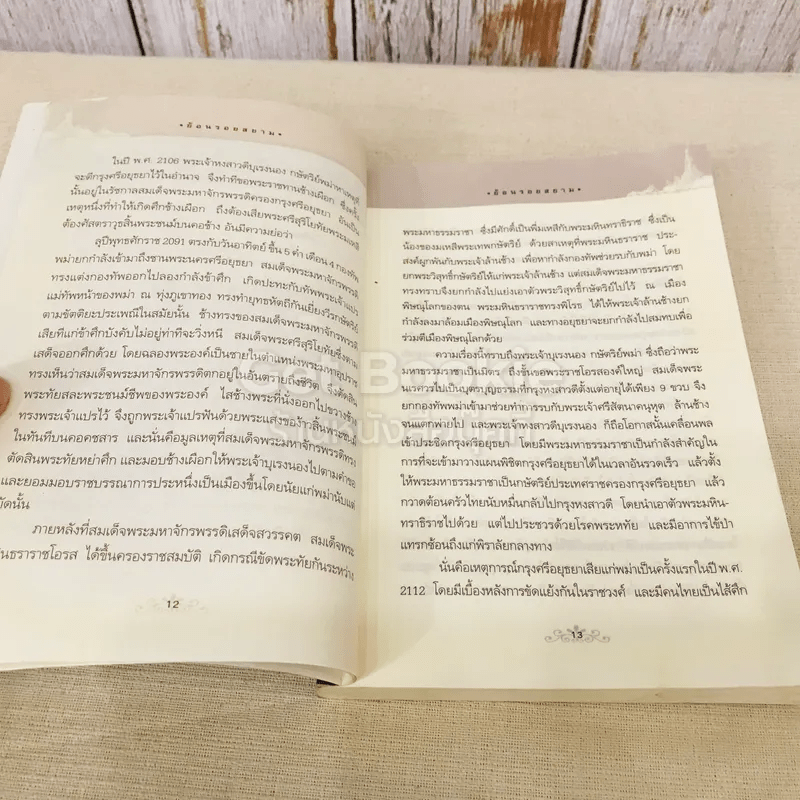 • ย้อนรอยสยาม •
ในปี พ.ศ. 2106 พระเจ้าหงสาวดีบุเรงนอง กษัตริย์พม่าหาเหตุที่
จะตีกรุงศรีอยุธยาไว้ในอำนาจ จึงทำทีขอพระราชทานช้างเผือก ซึ่งครั้ง
นั้นอยู่ในรัชกาลสมเด็จพระมหาจักรพรรดิครองกรุงศรีอยุธยา อันเป็น
เหตุหนึ่งที่ทำให้เกิดศึกช้างเผือก ถึงต้องเสียพระศรีสุริโยทัยพระมเหสี
ต้องศัสตราวุธสิ้นพระชนม์บนคอช้าง อันมีความย่อว่า
ลุปีพุทธศักราช 2091 ตรงกับวันอาทิตย์ ขึ้น 5 ค่ำ เดือน 4 กองทัพ
พม่ายกกำลังเข้ามาถึงชานพระนครศรีอยุธยา สมเด็จพระมหาจักรพรรดิ
ทรงแต่งกองทัพออกไปลองกำลังข้าศึก เกิดปะทะกับทัพพระเจ้าแปร
แม่ทัพหน้าของพม่า ณ ทุ่งภูเขาทอง ทรงทำยุทธหัตถีกันเยี่ยงวีรกษัตริย์
ตามขัตติยะประเพณีในสมัยนั้น ช้างทรงของสมเด็จพระมหาจักรพรรดิ
เสียทีแก่ข้าศึกบังคับไม่อยู่ท่าทีจะวิ่งหนี สมเด็จพระศรีสุริโยทัยซึ่งตาม
เสด็จออกศึกด้วย โดยฉลองพระองค์เป็นชายในตำแหน่งพระมหาอุปราช
ทรงเห็นว่าสมเด็จพระมหาจักรพรรดิตกอยู่ในอันตรายถึงชีวิต จึงตัดสิน
พระทัยสละพระชนม์ชีพของพระองค์ ไสช้างพระที่นั่งออกไปขวางช้าง
ทรงพระเจ้าแปรไว้ จึงถูกพระเจ้าแปรฟันด้วยพระแสงของ้าวสิ้นพระชนม์
ในทันทีบนคอคชสาร และนั่นคือมูลเหตุที่สมเด็จพระมหาจักรพรรดิทรง
ตัดสินพระทัยหย่าศึก และมอบช้างเผือกให้พระเจ้าบุเรงนองไปตามคำขอ
และยอมมอบราชบรรณาการประหนึ่งเป็นเมืองขึ้นโดยนัยแก่พม่านับแต่
บัดนั้น
ภายหลังที่สมเด็จพระมหาจักรพรรดิเสด็จสวรรคต สมเด็จพระ
นธราราชโอรส ได้ขึ้นครองราชสมบัติ เกิดกรณีขัดพระทัยกันระหว่าง
12
• ย้อนรอยสยาม •
พระมหาธรรมราชา ซึ่งมีศักดิ์เป็นพี่มเหสีกับพระมหินทราธิราช ซึ่งเป็น
น้องของมเหสีพระเทพกษัตรีย์ ด้วยสาเหตุที่พระมหินธราราช ประ-
สงค์ผูกพันกับพระเจ้าล้านช้าง เพื่อหากำลังกองทัพช่วยรบกับพม่า โดย
ยกพระวิสุทธิ์กษัตรีย์ให้แก่พระเจ้าล้านช้าง แต่สมเด็จพระมหาธรรมราชา
ทรงทราบจึงยกกำลังไปแย่งเอาตัวพระวิสุทธิ์กษัตรีย์ไปไว้ ณ เมือง
พิษณุโลกของตน พระมหินธราราชทรงพิโรธ ได้ให้พระเจ้าล้านช้างยก
กำลังลงมาล้อมเมืองพิษณุโลก และทางอยุธยาจะยกกำลังไปสมทบเพื่อ
ร่วมตีเมืองพิษณุโลกด้วย
ความเรื่องนี้ทราบถึงพระเจ้าบุเรงนอง กษัตริย์พม่า ซึ่งถือว่าพระ
มหาธรรมราชาเป็นมิตร ถึงชั้นขอพระราชโอรสองค์ใหญ่ สมเด็จพระ
นเรศวรไปเป็นบุตรบุญธรรมที่กรุงหงสาวดีตั้งแต่อายุได้เพียง 9 ขวบ จึง
ยกกองทัพพม่าเข้ามาช่วยทำการรบกับพระเจ้าศรีสัตนาคนหุต ล้านช้าง
จนแตกพ่ายไป และพระเจ้าหงสาวดีบุเรงนอง ก็ถือโอกาสนั้นเคลื่อนพล
เข้าประชิดกรุงศรีอยุธยา โดยมีพระมหาธรรมราชาเป็นกำลังสำคัญใน
การที่จะเข้ามาวางแผนพิชิตกรุงศรีอยุธยาได้ในเวลาอันรวดเร็ว แล้วตั้ง
ให้พระมหาธรรมราชาเป็นกษัตริย์ประเทศราชครองกรุงศรีอยุธยา แล้ว
กวาดต้อนครัวไทยนับหมื่นกลับไปกรุงหงสาวดี โดยนำเอาตัวพระมหิน-
ทราธิราชไปด้วย แต่ไปประชวรด้วยโรคพระหทัย และมีอาการไข้ป่า
แทรกซ้อนถึงแก่พิราลัยกลางทาง
นั่นคือเหตุการณ์กรุงศรีอยุธยาเสียแก่พม่าเป็นครั้งแรกในปี พ.ศ.
2112 โดยมีเบื้องหลังการขัดแย้งกันในราชวงศ์ และมีคนไทยเป็นไส้ศึก
13